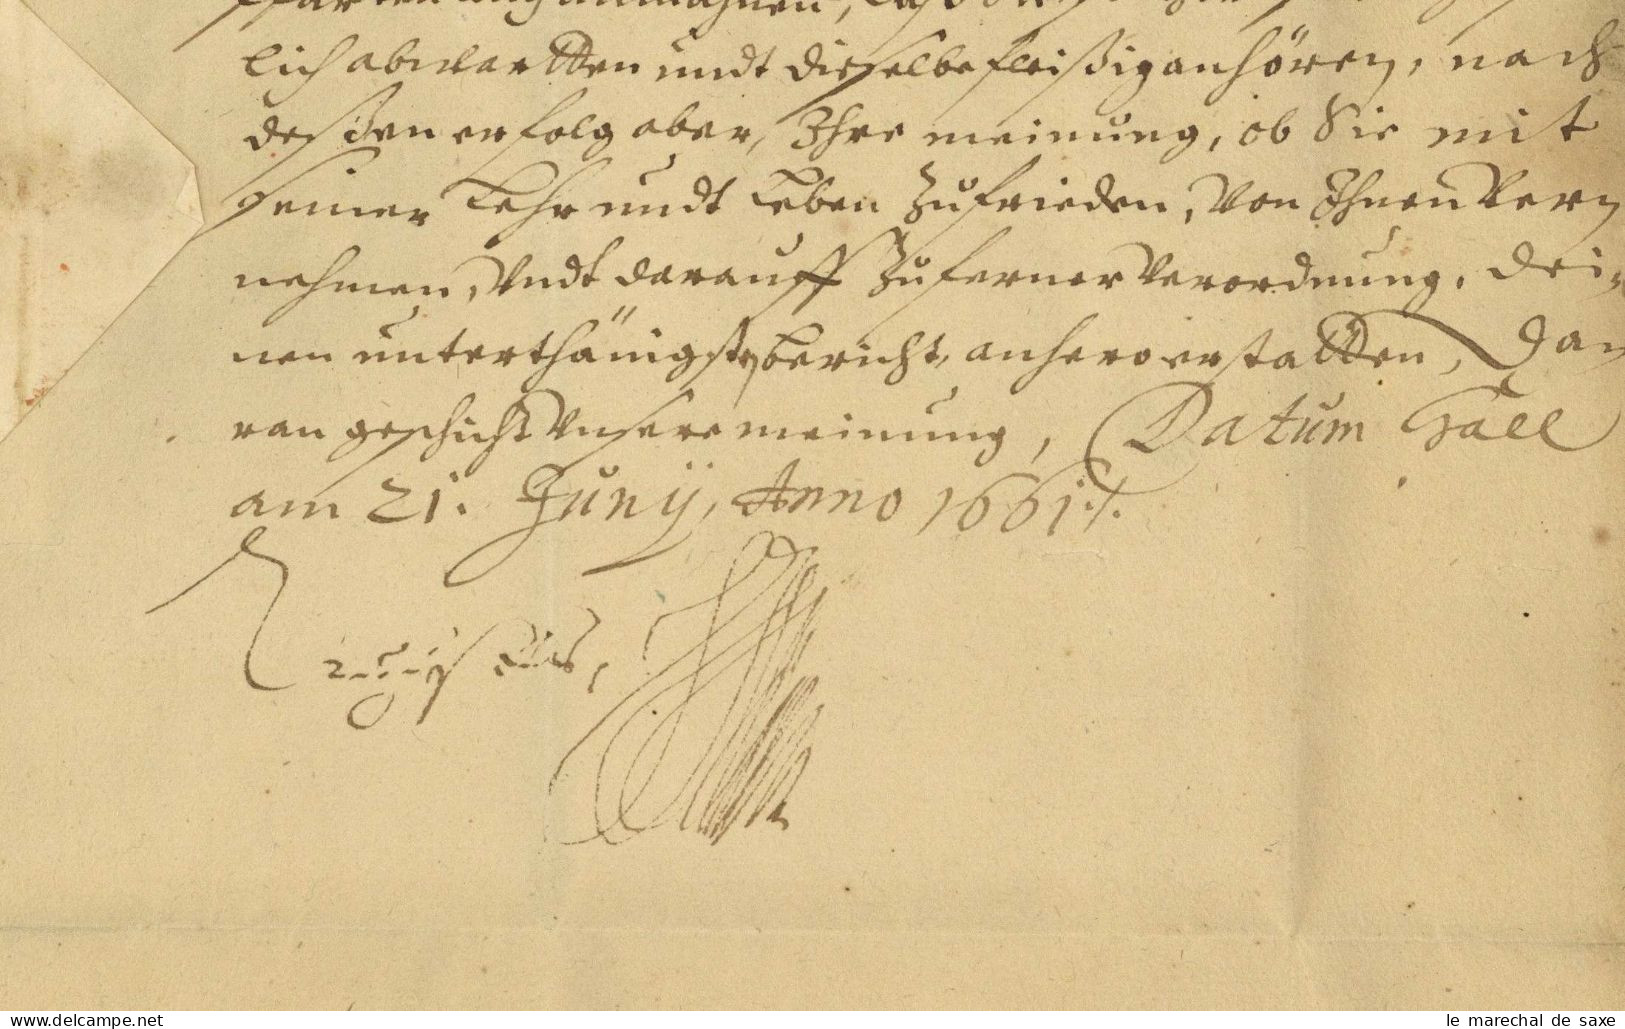 lich abwartten undt dieselbe fleißig anhören, nach
deßen erfolg aber, Ihre meinung, ob Sie mit
seiner Lehr undt Leben Zufrieden, Von Ihnen Ver
nehmen, Vndt darauff Zu ferner Verordnung, dei-
nen unterthänigsten bericht, anhero erstatten, Da
ran geschicht Vnsere meinung, Datum Hall
am 21. Junÿ, Anno 1661./.
www.delcampe.net
le marechal de saxe